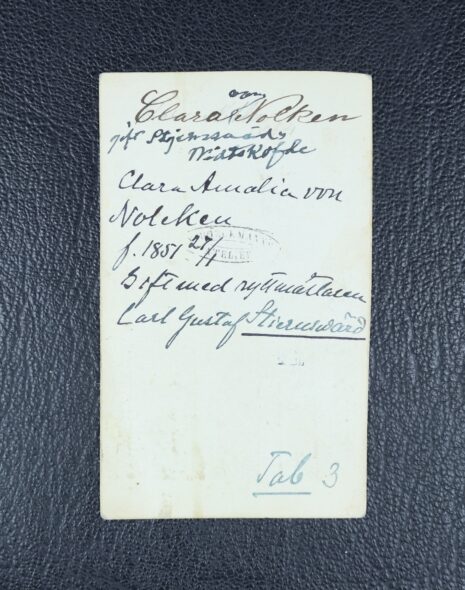 von
Clara Nolcken
gift Stjernswärd
Vidtsköfle
Clara Amalia von
Nolcken
f. 1851 27/1
Gift med ryttmästaren
Carl Gustaf Stiernswärd
ATELIER
Tab 3